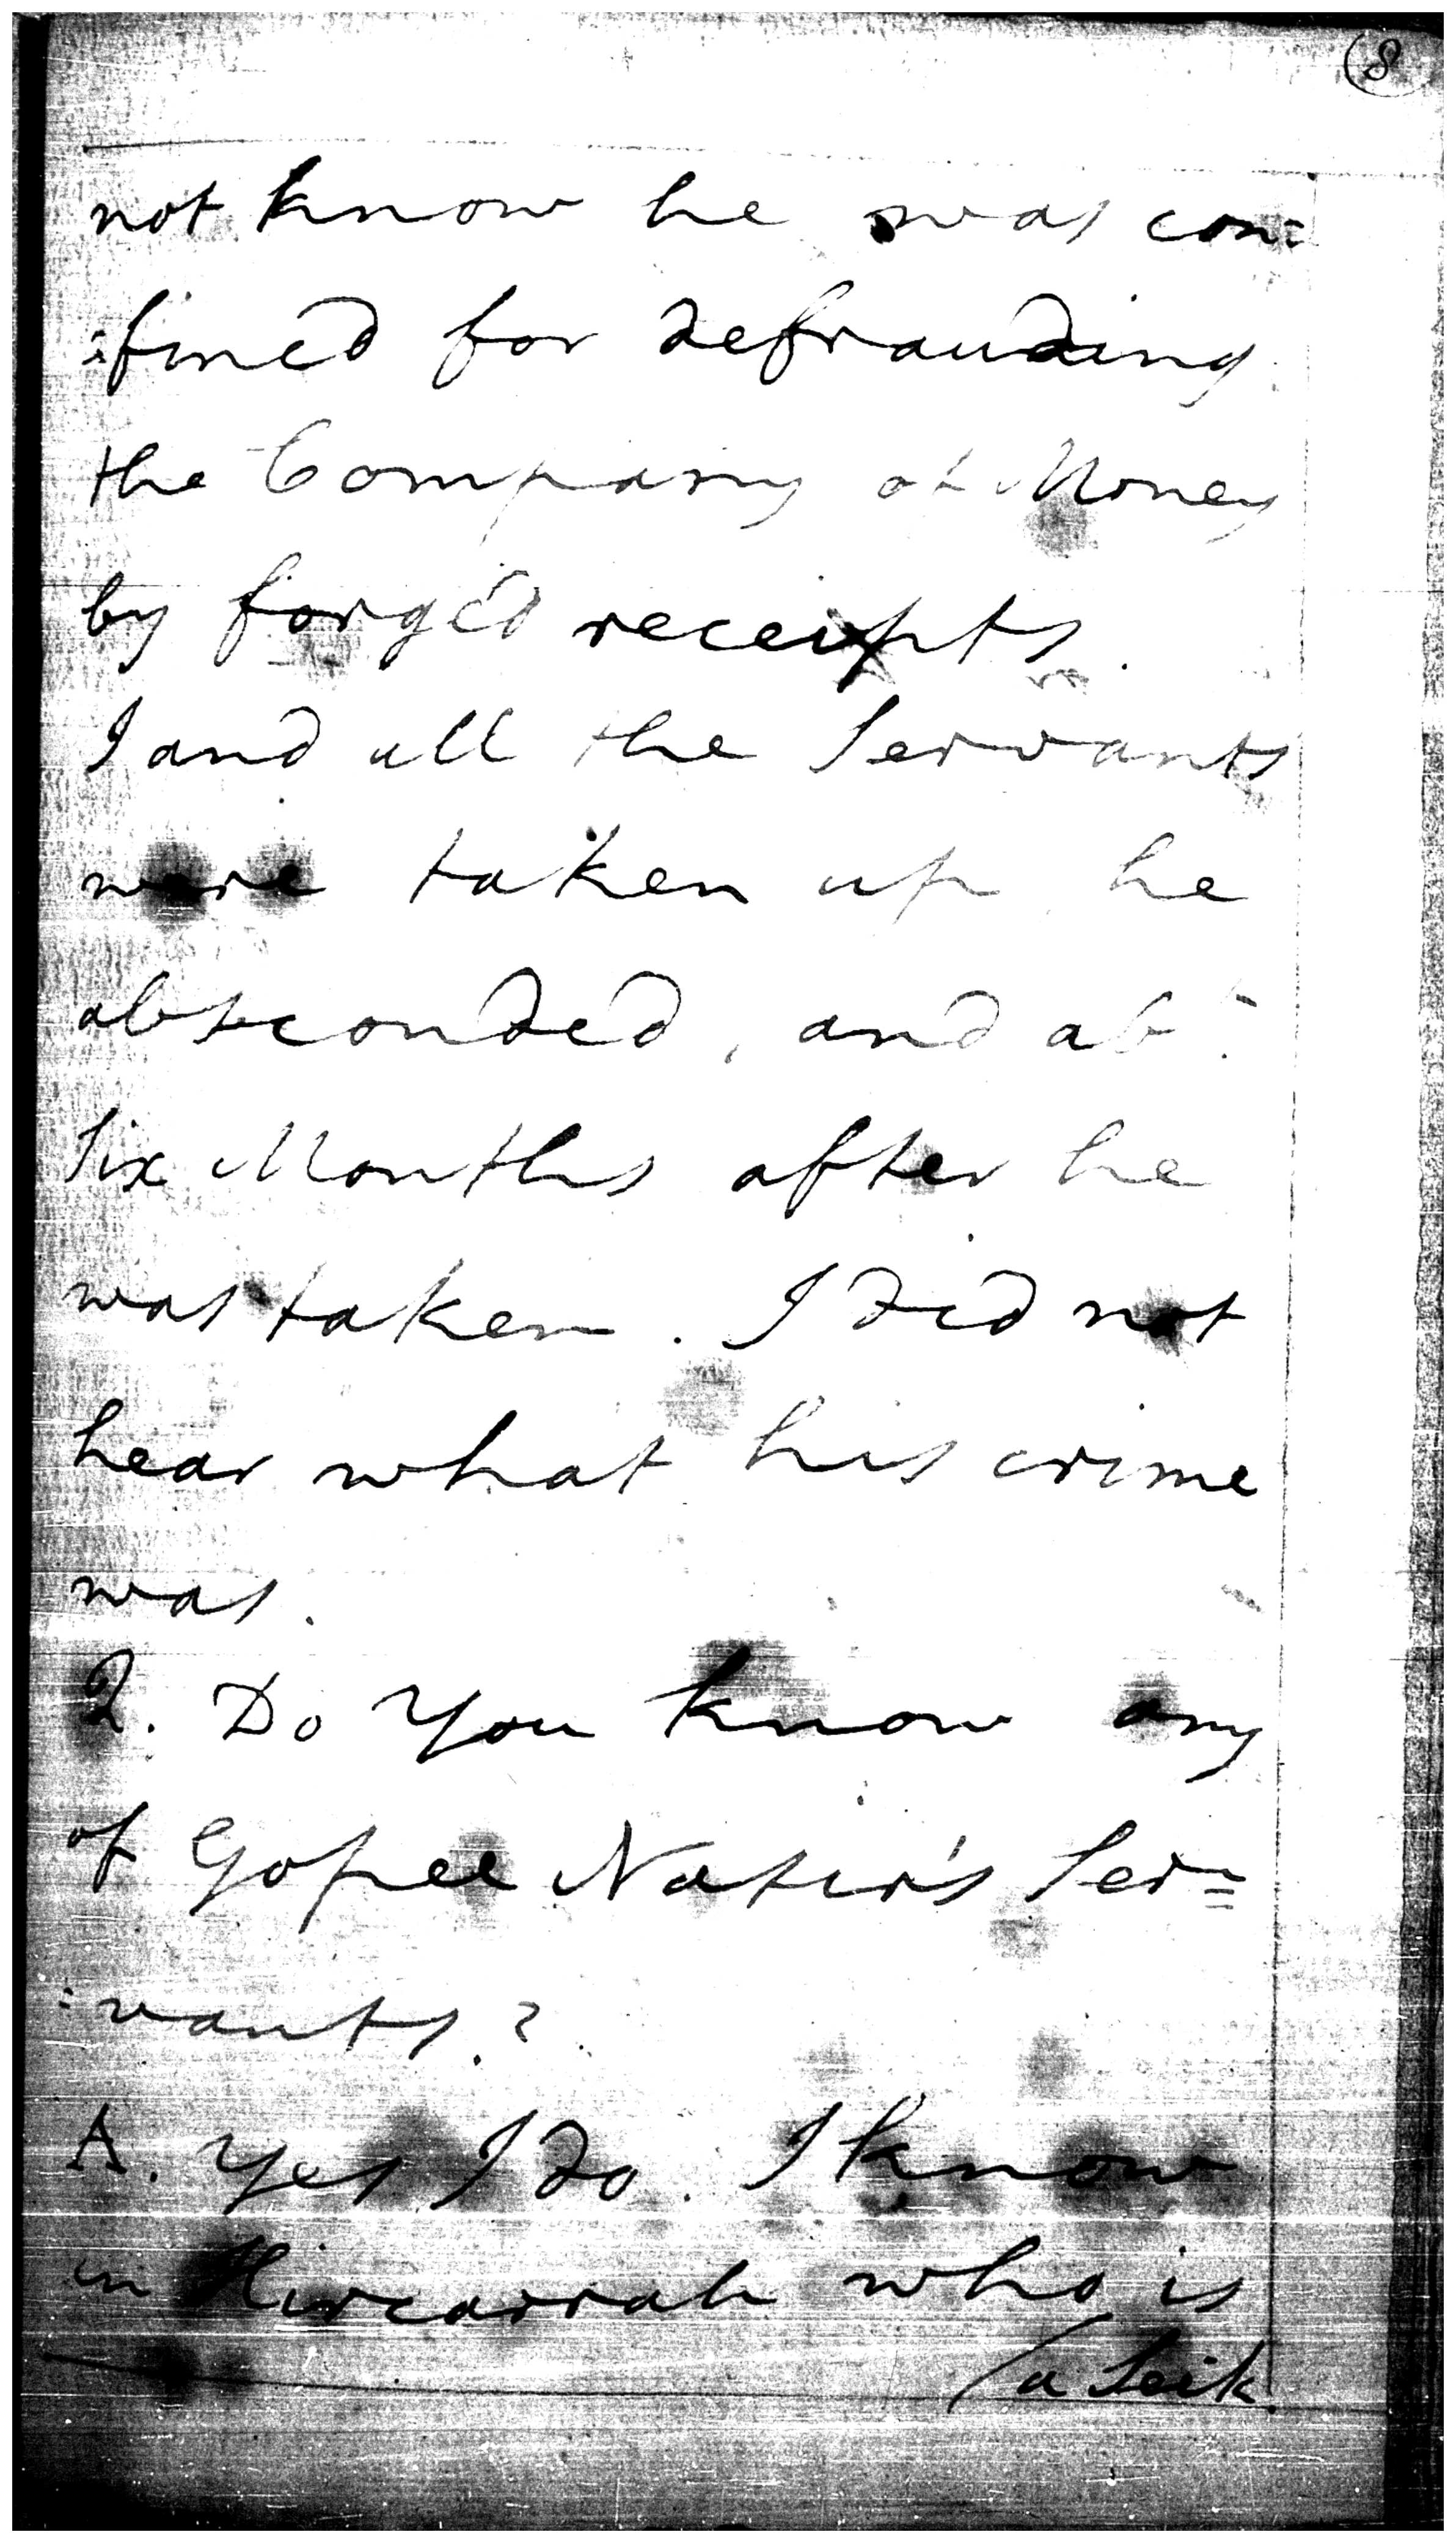 (8
not know he was con=
=fined for defrauding
the Company of Money
by forg'd receipts.
I and all the Servants
were taken up, he
absconded, and abt.
Six Months after he
was taken. I did not
hear what his crime
was.
Q. Do You know any
of Gopee Nasir's Ser=
=vants?
A. Yes I do. I know
an Hircarrah who is
(a Seik